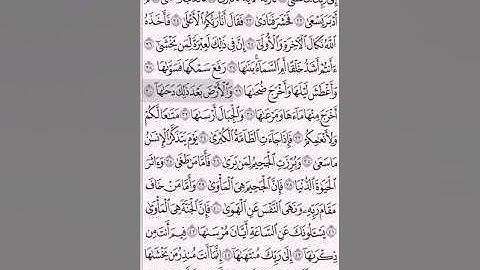 أَدْبَرَ يَسْعَىٰ ٢٢ فَحَشَرَ فَنَادَىٰ ٢٣ فَقَالَ أَنَا۠ رَبُّكُمُ ٱلْأَعْلَىٰ ٢٤ فَأَخَذَهُ
ٱللَّهُ نَكَالَ ٱلْأٓخِرَةِ وَٱلْأُولَىٰٓ ٢٥ إِنَّ فِى ذَٰلِكَ لَعِبْرَةً لِّمَن يَخْشَىٰٓ ٢٦
ءَأَنتُمْ أَشَدُّ خَلْقًا أَمِ ٱلسَّمَآءُ ۚ بَنَىٰهَا ٢٧ رَفَعَ سَمْكَهَا فَسَوَّىٰهَا ٢٨
وَأَغْطَشَ لَيْلَهَا وَأَخْرَجَ ضُحَىٰهَا ٢٩ وَٱلْأَرْضَ بَعْدَ ذَٰلِكَ دَحَىٰهَآ ٣٠
أَخْرَجَ مِنْهَا مَآءَهَا وَمَرْعَىٰهَا ٣١ وَٱلْجِبَالَ أَرْسَىٰهَا ٣٢ مَتَٰعًا لَّكُمْ
وَلِأَنْعَٰمِكُمْ ٣٣ فَإِذَا جَآءَتِ ٱلطَّآمَّةُ ٱلْكُبْرَىٰ ٣٤ يَوْمَ يَتَذَكَّرُ ٱلْإِنسَٰنُ
مَا سَعَىٰ ٣٥ وَبُرِّزَتِ ٱلْجَحِيمُ لِمَن يَرَىٰ ٣٦ فَأَمَّا مَن طَغَىٰ ٣٧ وَءَاثَرَ
ٱلْحَيَوٰةَ ٱلدُّنْيَا ٣٨ فَإِنَّ ٱلْجَحِيمَ هِىَ ٱلْمَأْوَىٰ ٣٩ وَأَمَّا مَنْ خَافَ
مَقَامَ رَبِّهِۦ وَنَهَى ٱلنَّفْسَ عَنِ ٱلْهَوَىٰ ٤٠ فَإِنَّ ٱلْجَنَّةَ هِىَ ٱلْمَأْوَىٰ
٤١ يَسْـَٔلُونَكَ عَنِ ٱلسَّاعَةِ أَيَّانَ مُرْسَىٰهَا ٤٢ فِيمَ أَنتَ مِن
ذِكْرَىٰهَآ ٤٣ إِلَىٰ رَبِّكَ مُنتَهَىٰهَآ ٤٤ إِنَّمَآ أَنتَ مُنذِرُ مَن يَخْشَىٰهَا